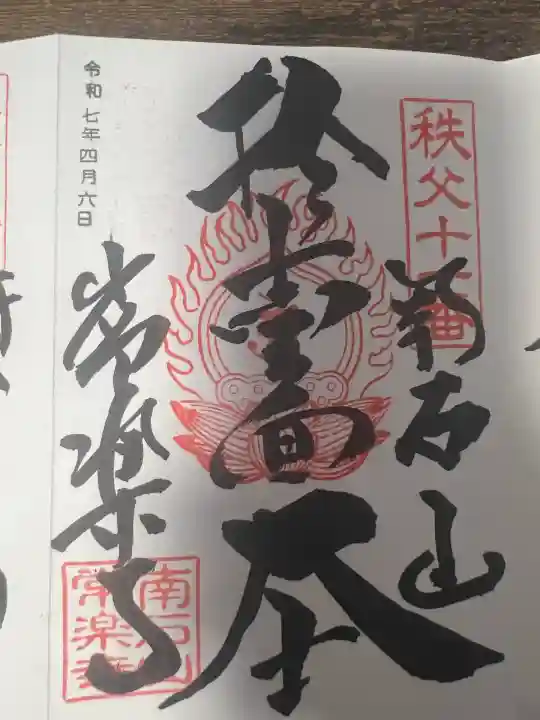 秩父十一番
南石山
拾壹面大士
常楽寺
南石山
常楽寺
令和七年四月六日